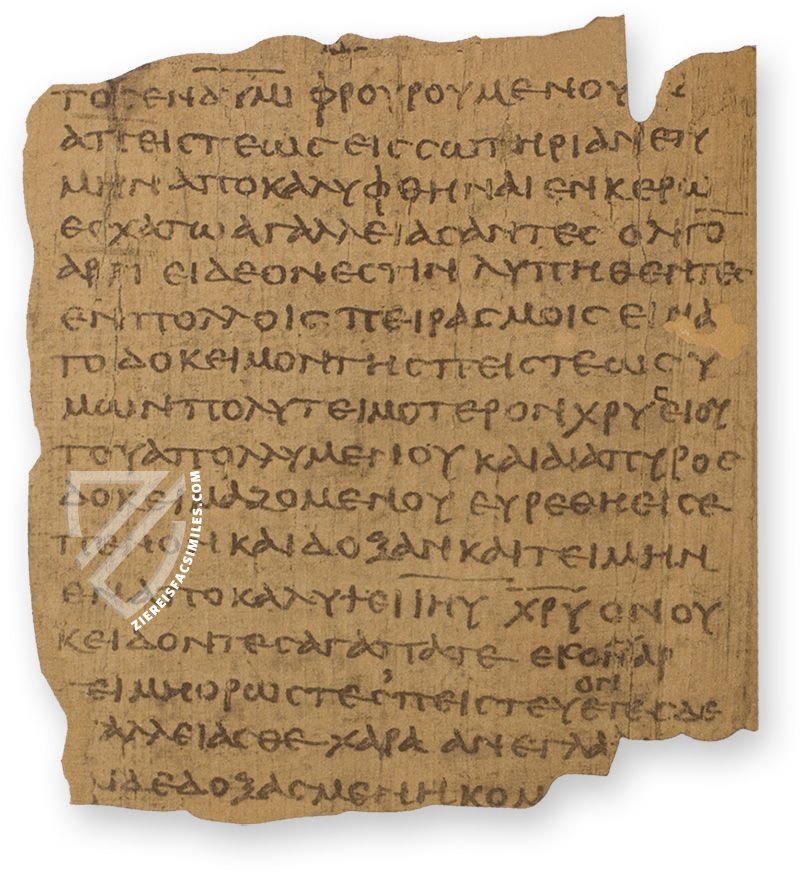 ΤΟϹΕΝΔΥΜΙ ΦΡΟΥΡΟΥΜΕΝΟΥ
ΑΠΕΙϹΤΕΩϹ ΕΙϹϹΩΤΗΡΙΑΝΕΤΥ
ΜΗΝ ΑΠΟΚΑΛΥΦΘΗΝΑΙ ΕΝ ΚΕΡΩ
ΕϹΧΑΤΩ ΑΓΑΛΛΕΙΑϹΑΝΤΕϹ ΟΛΙΓΟ
ΑΡΤΙ ΕΙΔΕΟΝΕϹΤΙΝ ΛΥΠΗΘΕΝΤΕϹ
ΕΝΠΟΛΛΟΙϹ ΠΕΙΡΑϹΜΟΙϹ ΕΙΝΑ
ΤΟ ΔΟΚΕΙΜΟΝΤΗϹ ΠΕΙϹΤΕΩϹ Υ
ΜΩΝΠΟΛΥΤΕΙΜΟΤΕΡΟΝΧΡΥϹΕΙΟΥ
ΤΟΥΑΠΟΛΛΥΜΕΝΟΥ ΚΑΙΔΙΑΠΥΡΟϹ
ΔΟΚΕΙΜΑΖΟΜΕΝΟΥ ΕΥΡΕΘΗΕΙϹΕ
ΠΕΝΟΝ ΚΑΙ ΔΟΞΑΝ ΚΑΙΤΕΙΜΗΝ
ΕΝΑΠΟΚΑΛΥΨΕΙ ΙΗΥ ΧΡΥ ΟΝΟΥ
ΚΕΙΔΟΝΤΕϹΑΓΑΠΑΤΕ ΕΙϹΟΝΑΡ
ΟΝ
ΤΕΙΜΗΟΡΩϹΤΕϹ ΠΕΙϹΤΕΥΕΤΕϹΔΕ
ΑΛΛΕΙΑϹΘΕ ΧΑΡΑ ΑΝΕΓΛΑ
ΔΕΔΟΞΑϹΜΕΝΗ ΚΟΜ
ZIEREISFACSIMILES.COM